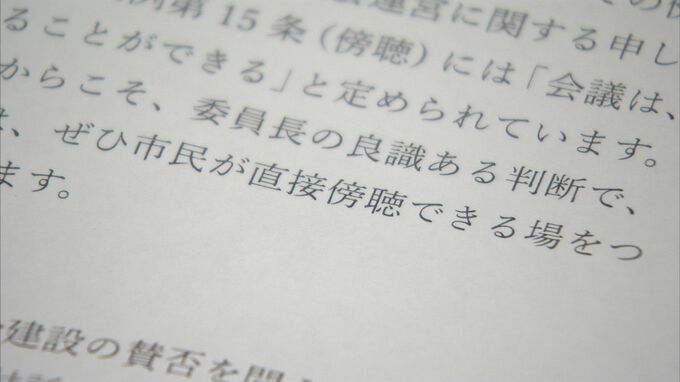 会運営に関する申し
例第15条(傍聴)には「会議は、
ることができる」と定められています。
からこそ、委員長の良識ある判断で、
は、ぜひ市民が直接傍聴できる場をつ
ます。
建設の賛否を問